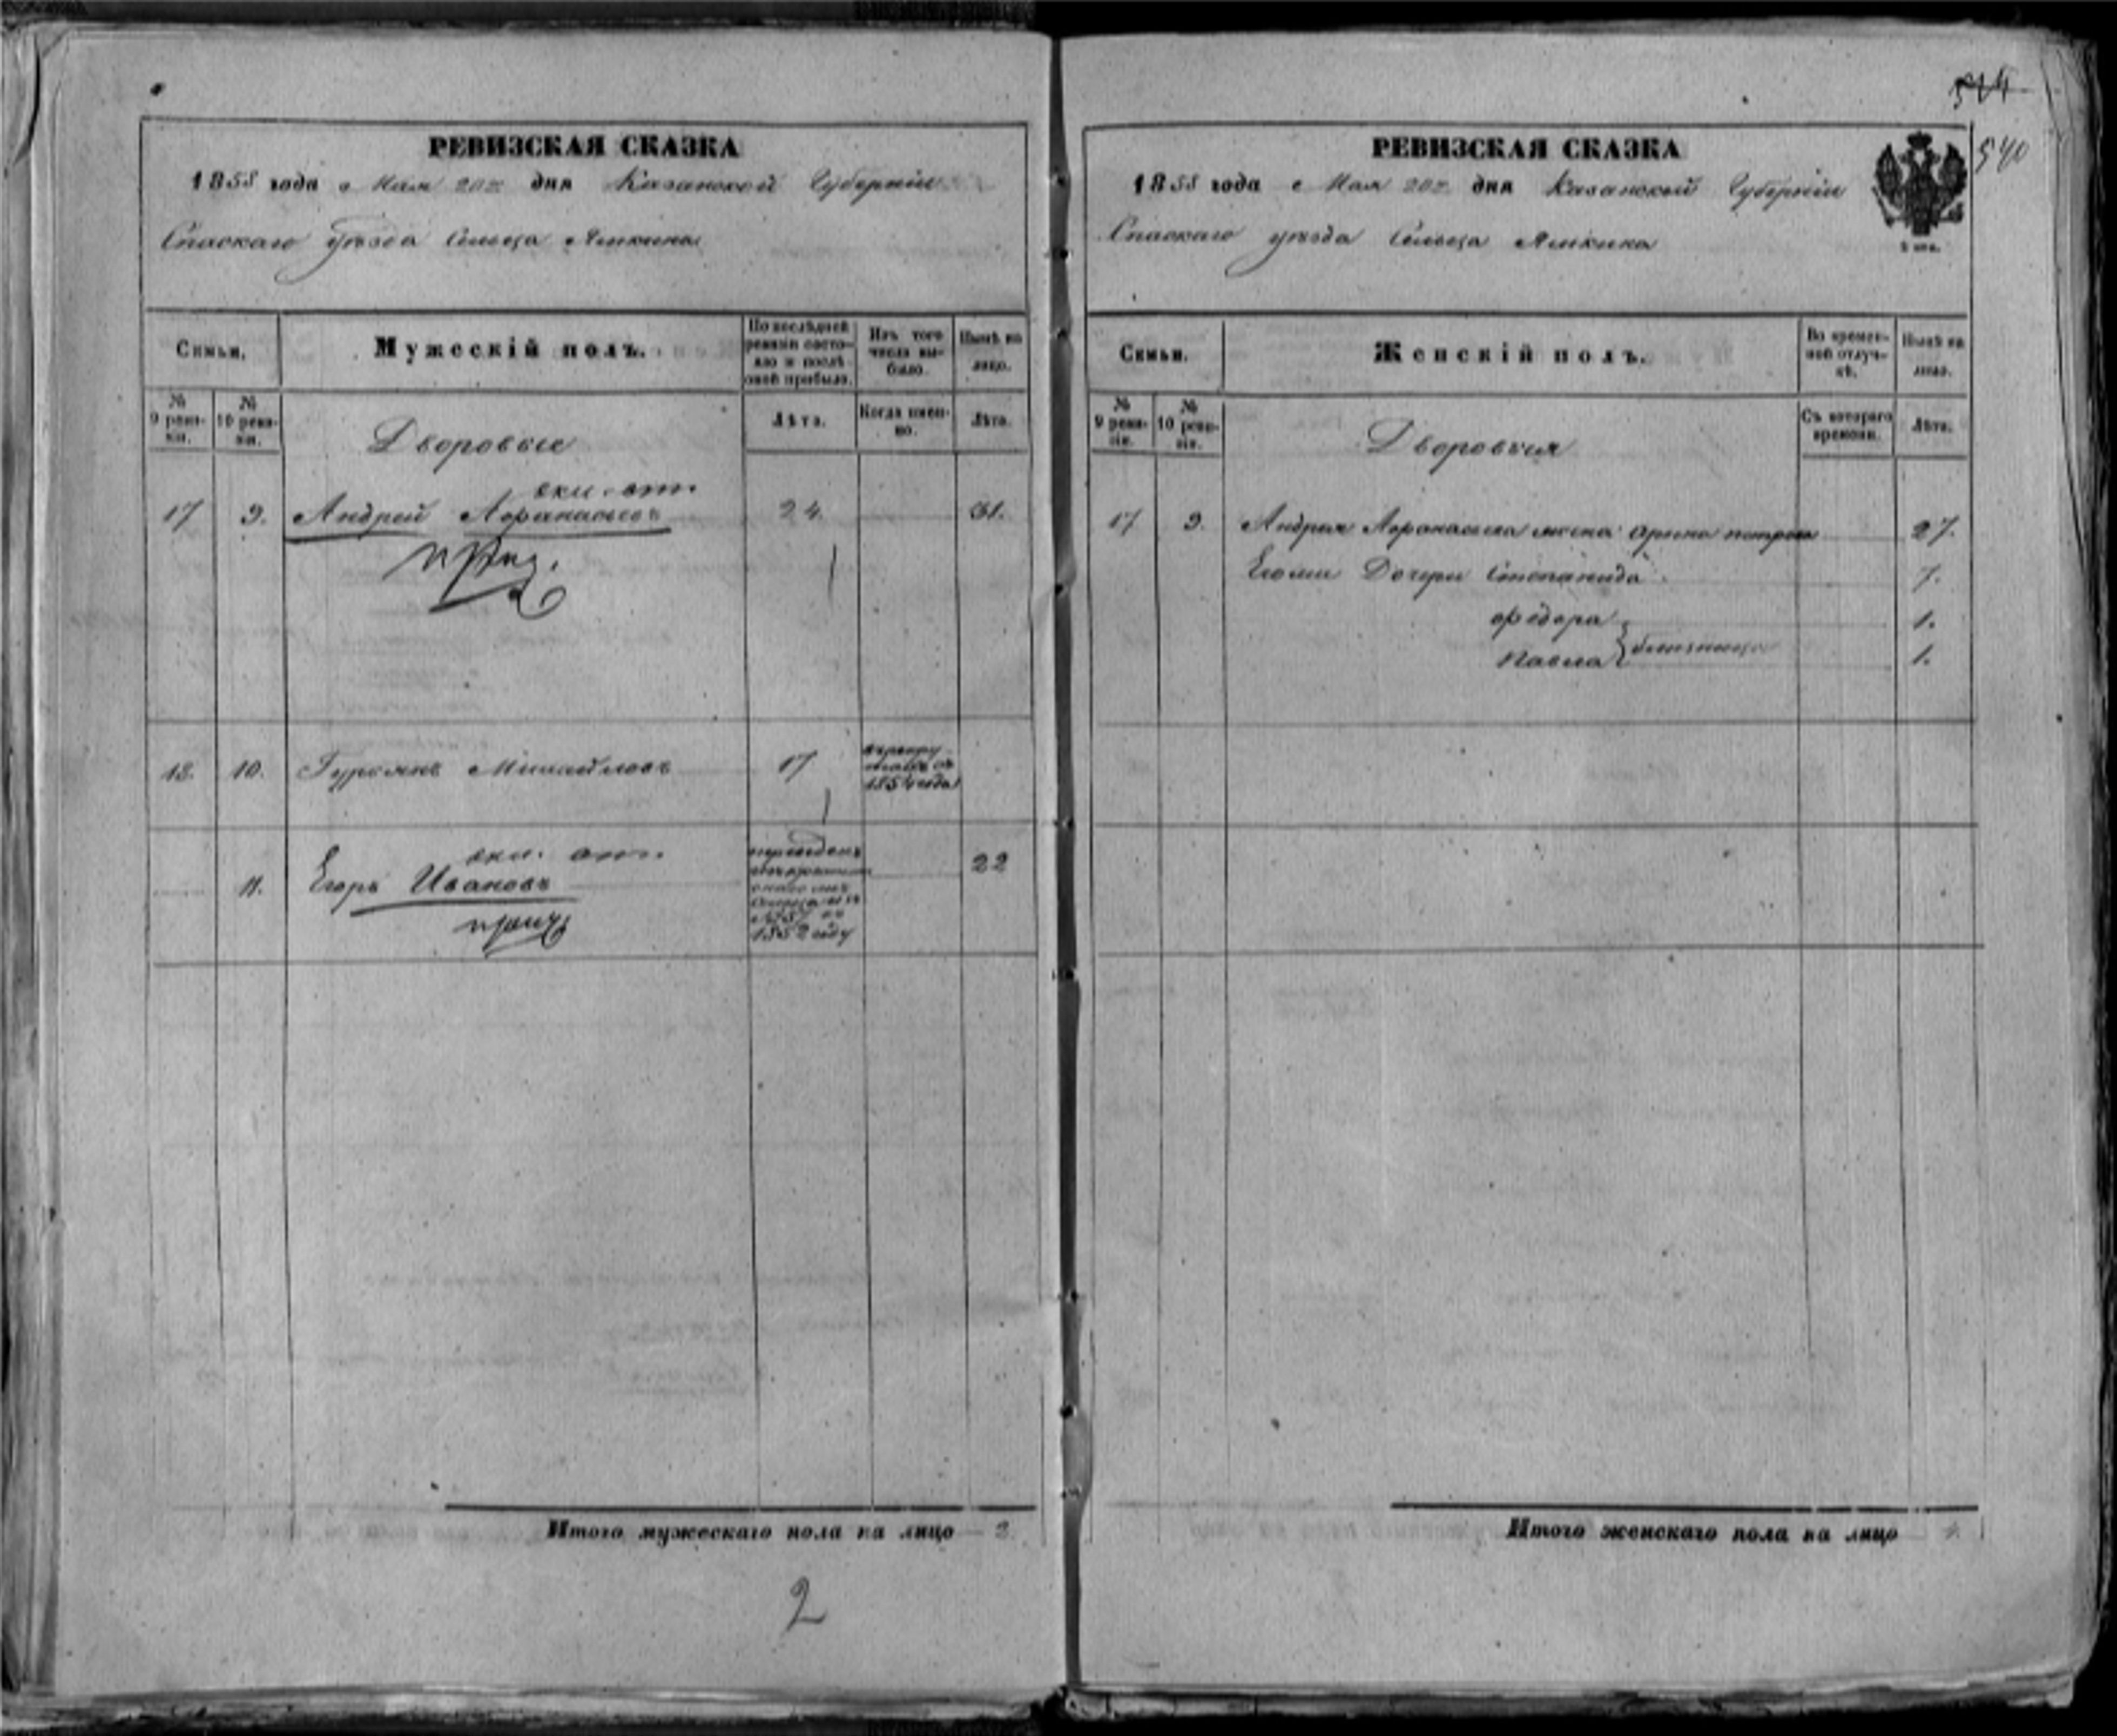 РЕВИЗСКАЯ СКАЗКА
1858 года Мая 20 дня Казанской Губернiи
Спаскаго уѣзда Сельца Ямкина
Семьи.
Мужескiй полъ.
По послѣдней ревизiи состояло и послѣ оной прибыло.
Изъ того числа выбыло.
Нынѣ на лицо.
№ 9 ревизiи.
№ 10 ревизiи.
Дворовые
Лѣта.
Когда именно.
Лѣта.
17 9. Андрей Афанасьевъ 24. 31.
18. 10. Михайловъ 17 1854 года
11. Егоръ Ивановъ 22
1852 году
Итого мужескаго пола на лицо 2.
2
524
540
РЕВИЗСКАЯ СКАЗКА
1858 года Мая 20 дня Казанской Губернiи
Спаскаго уѣзда Сельца Ямкина
Семьи.
Женскiй полъ.
Во временной отлучкѣ.
Нынѣ на лицо.
№ 9 ревизiи.
№ 10 ревизiи.
Дворовыя
Съ котораго времени.
Лѣта.
17 9. Андрея Афанасьева жена Арина Петрова 27.
Дочери Степанида 7.
Федора 1.
близнецы
Павла 1.
Итого женскаго пола на лицо 4.